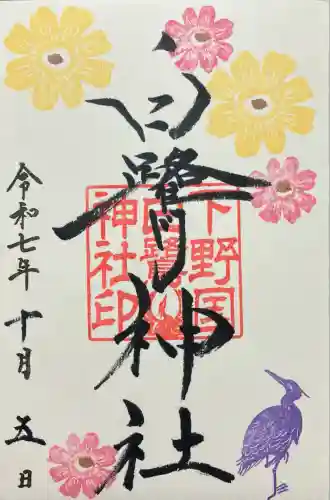 白鷺神社
下野国
白鷺山
神社印
令和七年 十月 五日